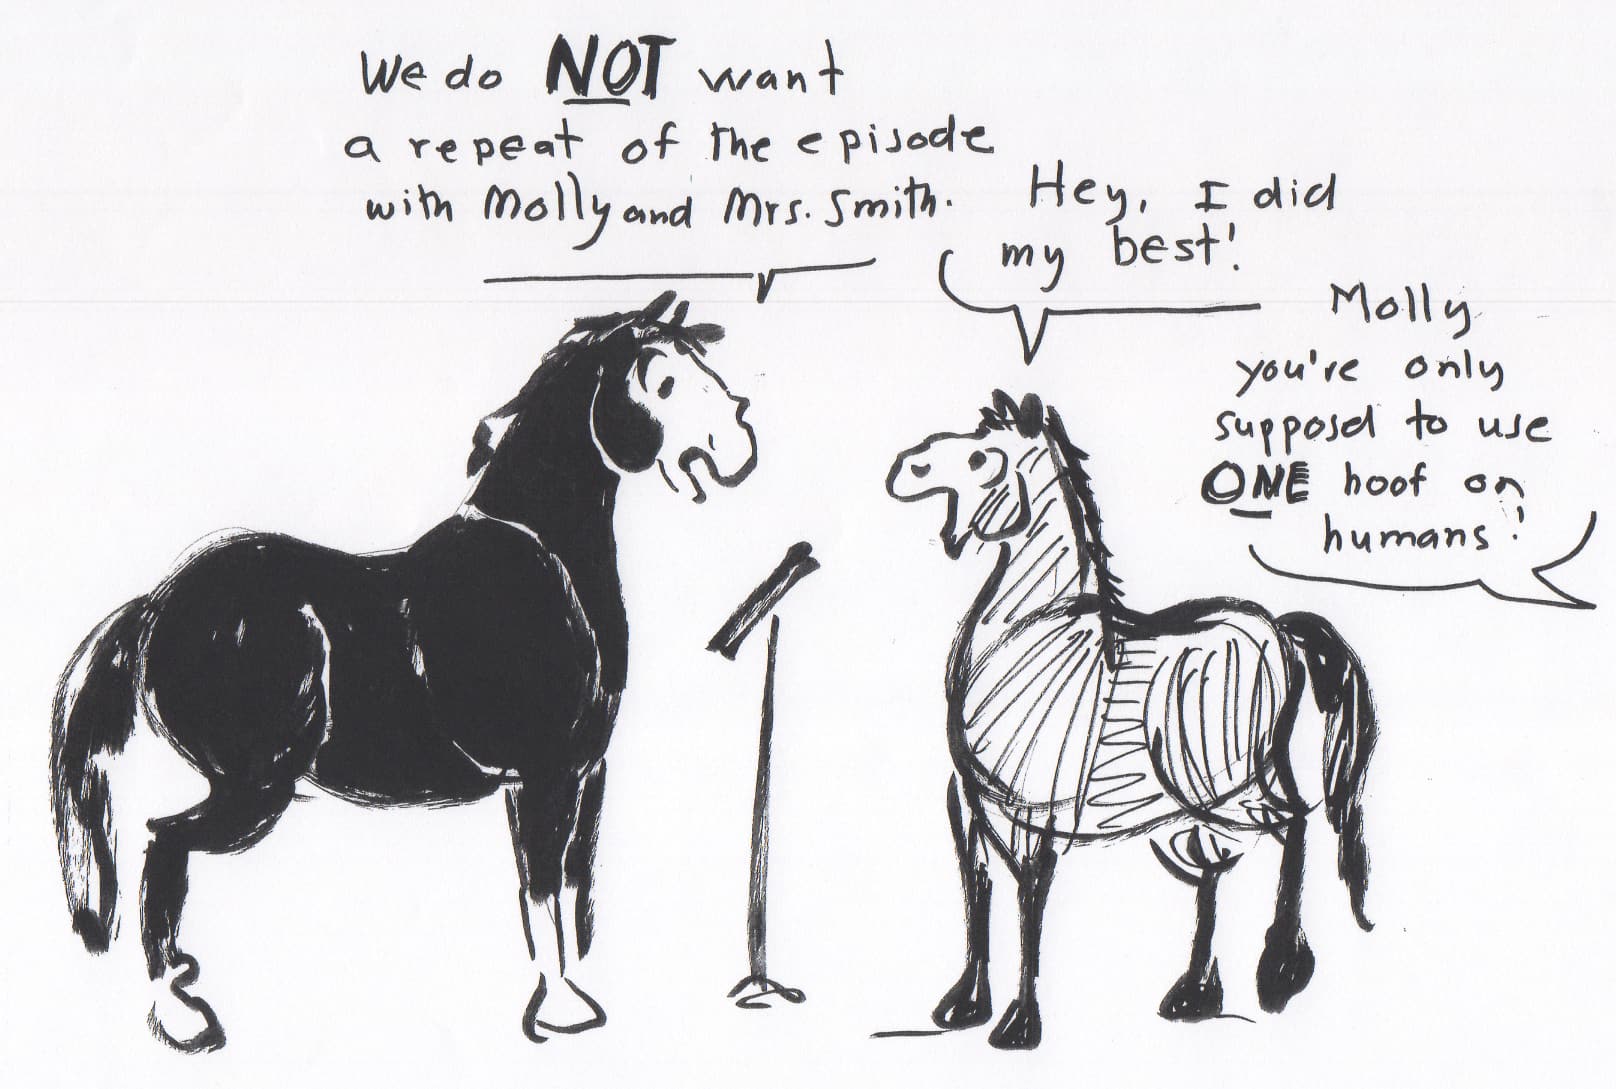 We do NOT want
a repeat of the episode
with Molly and Mrs. Smith.
Hey, I did
my best!
Molly
you're only
supposd to use
ONE hoof on
humans!